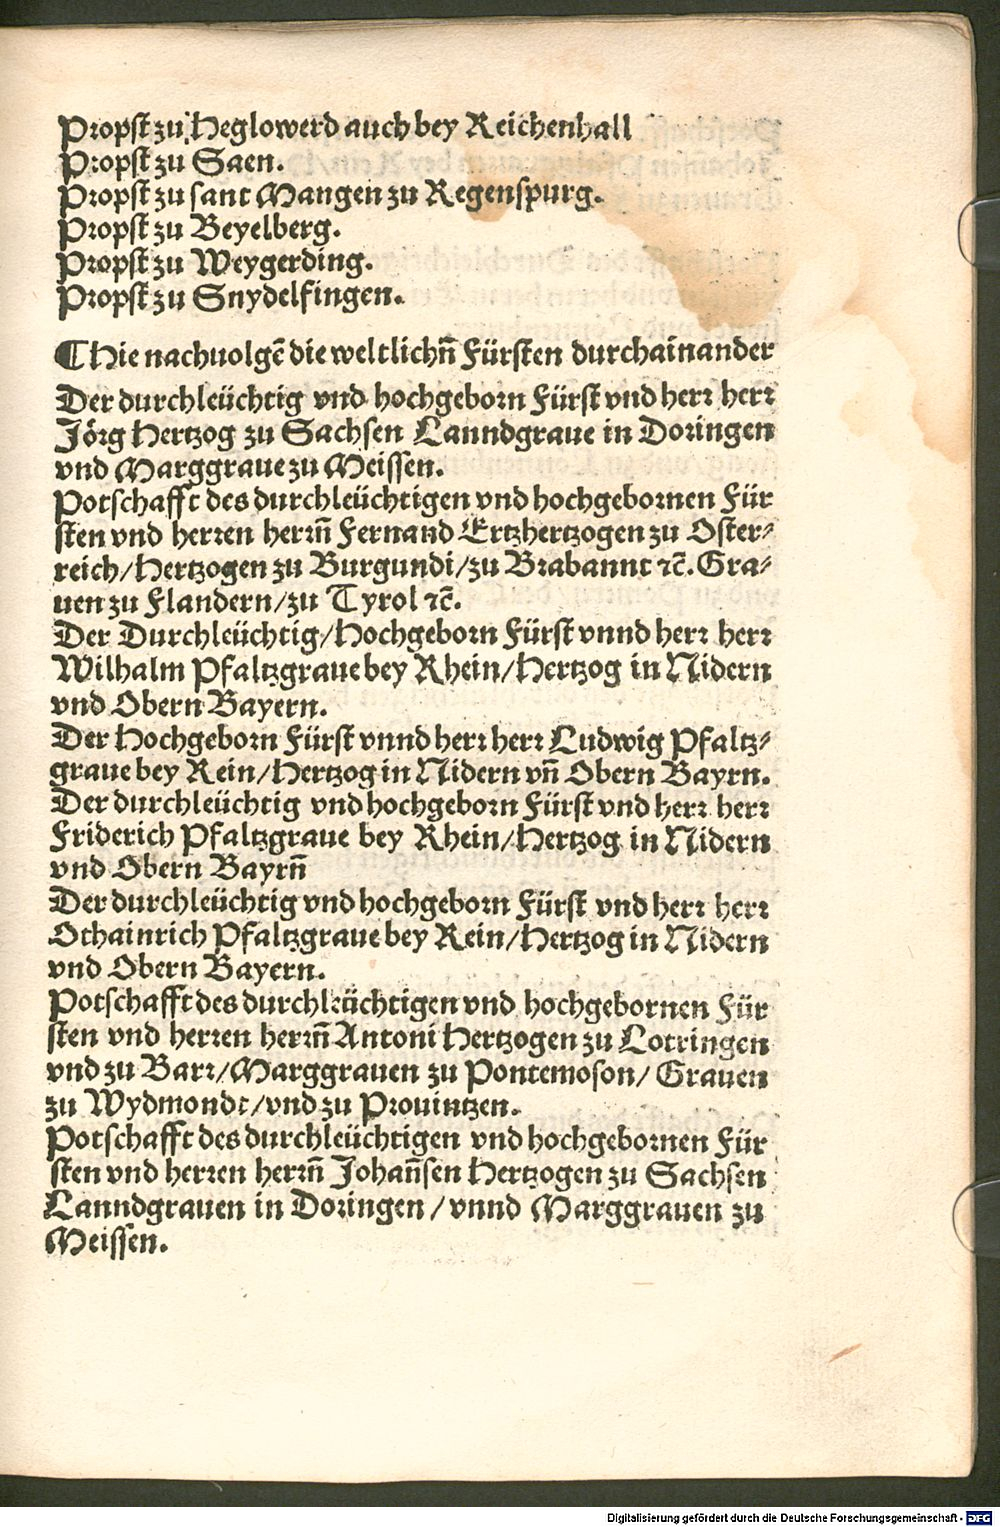 Propst zu Heglowerd auch bey Reichenhall
Propst zu Saen.
Propst zu sant Mangen zu Regenspurg.
Propst zu Beyelberg.
Propst zu Weygerding.
Propst zu Snydelfingen.
¶ Hie nachuolgē die weltlichn̄ Fürsten durchainander
Der durchleüchtig vnd hochgeborn Fürst vnd herr herr
Jörg Hertzog zu Sachsen Lanndgraue in Doringen
vnd Marggraue zu Meissen.
Potschafft des durchleüchtigen vnd hochgebornen Für
sten vnd herren herrn̄ Fernand Ertzhertzogen zu Oster⸗
reich/Hertzogen zu Burgundi/zu Brabannt ꝛc̄. Gra⸗
uen zu Flandern/zu Tyrol ꝛc̄.
Der Durchleüchtig/Hochgeborn Fürst vnnd herr herr
Wilhalm Pfaltzgraue bey Rhein/Hertzog in Nidern
vnd Obern Bayern.
Der Hochgeborn Fürst vnnd herr herr Ludwig Pfaltz⸗
graue bey Rein/Hertzog in Nidern vn̄ Obern Bayrn.
Der durchleüchtig vnd hochgeborn Fürst vnd herr herr
Friderich Pfaltzgraue bey Rhein/Hertzog in Nidern
vnd Obern Bayrn̄
Der durchleüchtig vnd hochgeborn Fürst vnd herr herr
Othainrich Pfaltzgraue bey Rein/Hertzog in Nidern
vnd Obern Bayern.
Potschafft des durchleüchtigen vnd hochgebornen Für
sten vnd herren herrn̄ Antoni Hertzogen zu Lotringen
vnd zu Barr/Marggrauen zu Pontemoson/ Grauen
zu Wydmondt/vnd zu Prouintzen.
Potschafft des durchleüchtigen vnd hochgebornen Für
sten vnd herren herrn̄ Johan̄sen Hertzogen zu Sachsen
Lanndgrauen in Doringen /vnnd Marggrauen zu
Meissen.
Digitalisierung gefördert durch die Deutsche Forschungsgemeinschaft - DFG